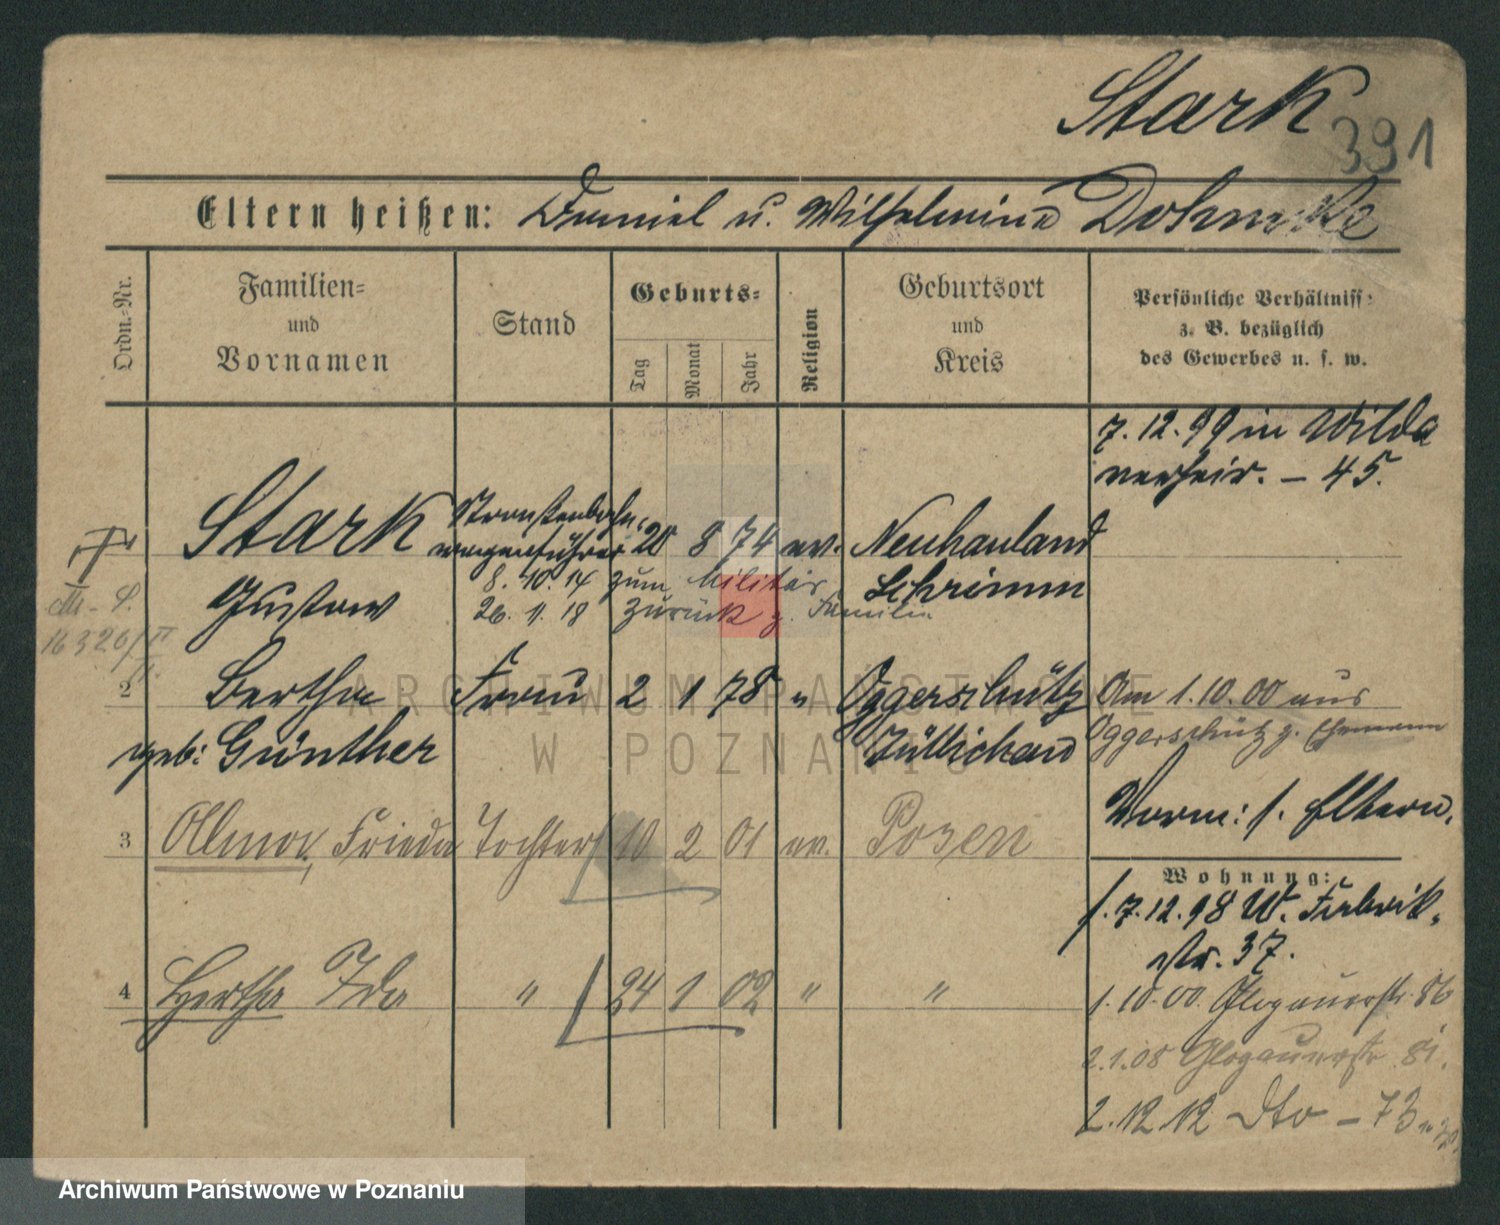 Stark
391
Eltern heißen: Daniel u. Wilhelmine Dohmke
Ordn.-Nr.
Familien-
und
Vornamen
Stand
Geburts-
Tag
Monat
Jahr
Religion
Geburtsort
und
Kreis
Persönliche Verhältniss:
z. B. bezüglich
des Gewerbes u. s. w.
7.12.99 in Wilda
verheir. - 45.
Stark Straßenbahn- wagenführer 20 8 74 ev. Neuhauland
8.10.14 zum Militär Schrimm
Gustav 26.11.18 zurück z. Familie
16326/II
2 Bertha Frau 2 1 78 " Oggerschütz Am 1.10.00 aus
geb: Günther Züllichau Oggerschütz z. Ehemann
Vorm: s. Eltern.
3 Frieda Tochter 10 2 01 ev. Posen
Wohnung:
7.12.98 W. Fabrik-
str. 37.
4 Hertha Ida " 24 1 02 " "
1.10.00. Glogauerstr. 86
2.1.08 Glogauerstr. 81.
2.12.12 dto - 73
ARCHIWUM PAŃSTWOWE
W POZNANIU
Archiwum Państwowe w Poznaniu